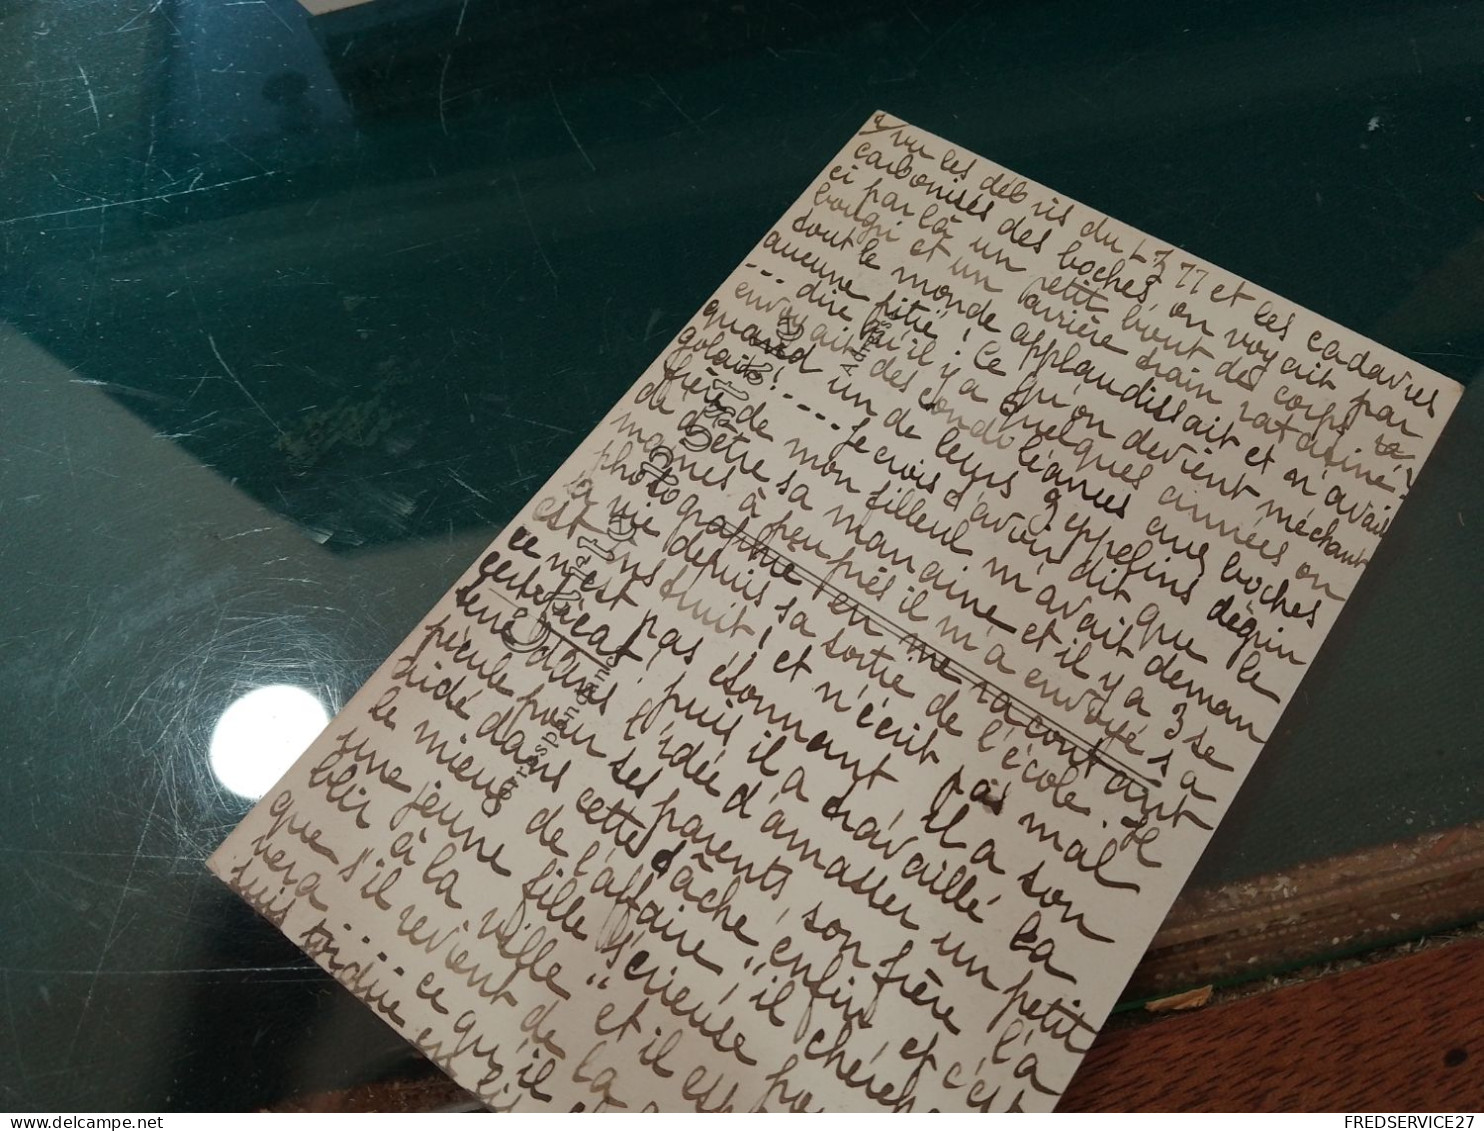 vu les débris du LZ 77 et les cadavres
carbonisés des boches, on voyait par
ci par là un petit bout de corps ra
bougri et un arrière train ratatiné !
tout le monde applaudissait et n'avait
aucune pitié ! Ce qu'on devient méchant
--- dire qu'il y a quelques années on
envoyait des condoléances aux boches
quand un de leurs zeppelins dégrin
golait ! ---- Je crois d'avoir dit que le
frère de mon filleul m'avait deman
dé d'être sa marraine et il y a 3 se
maines à peu près il m'a envoyé sa
photographie en me racontant
sa vie depuis sa sortie de l'école. Il
est instruit, et n'écrit pas mal
ce n'est pas étonnant, il a son
certificat, puis il a travaillé la
terre dans l'idée d'amasser un petit
pécule pour ses parents, son frère l'a
aidé dans cette tâche, enfin, et c'est
le mieux de l'affaire, "il cherche
une jeune fille sérieuse pour
à la ville" et il
que s'il revient de la
verra ---- ce qu'il
suis tordue
Correspondance
Adresse
FREDSERVICE27
delcampe.net